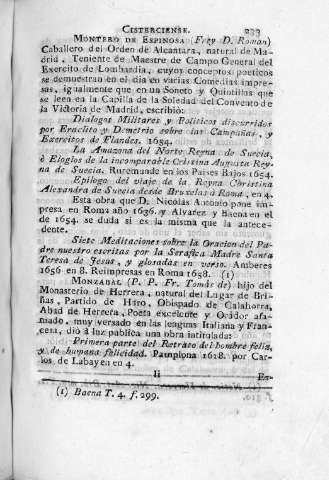 CISTERCIENSE. 233
MONTERO DE ESPINOSA (Frey D. Roman)
Caballero del Orden de Alcantara, natural de Ma-
drid, Teniente de Maestre de Campo General del
Exercito de Lombardia, cuyos conceptos poeticos
se demuestran en el dia en varias Comedias impre-
sas, igualmente que en un Soneto y Quintillas que
se leen en la Capilla de la Soledad del Convento de
la Victoria de Madrid, escribió:
Dialogos Militares y Politicos discurridos
por Eraclito y Demetrio sobre las Campañas, y
Exercitos de Flandes. 1654.
La Amazona del Norte Reyna de Suecia,
ó Elogios de la incomparable Cristina Augusta Rey-
na de Suecia. Ruremunde en los Paises Bajos 1654.
Epilogo del viaje de la Reyna Christina
Alexandra de Suecia desde Bruselas á Roma, en 4.
Esta obra que D. Nicolas Antonio pone im-
presa en Roma año 1636. y Alvarez y Baena en el
de 1654. se duda si es la misma que la antece-
dente.
Siete Meditaciones sobre la Oracion del Pa-
dre nuestro escritas por la Serafica Madre Santa
Teresa de Jesus, y glosadas en verso. Amberes
1656 en 8. Reimpresas en Roma 1658. (1)
MONZABAL (P. P. Fr. Tomás de) hijo del
Monasterio de Herrera, natural del Lugar de Bri-
ñas, Partido de Haro, Obispado de Calahorra,
Abad de Herrera, Poeta excelente y Orador afa-
mado, muy versado en las lenguas Italiana y Fran-
cesa, dió á luz publica una obra intitulada:
Primera parte del Retrato del hombre feliz,
y de humana felicidad. Pamplona 1618. por Car-
los de Labayen en 4.
Ii En-
(1) Baena T. 4. f. 299.